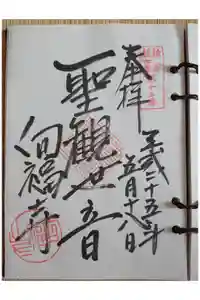 奉拝
平成二十五年
五月十八日
聖観世音
向福寺